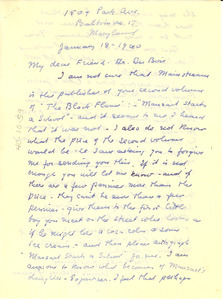 1807 Park Ave.
Baltimore 17,
Maryland
January 18-1960
My dear Friend - Dr. Du Bois.
I am not sure that Mainstream
is the publisher of your second volume
of "The Black Flame" :- "Mansart Starts
a School" - and it seems to me I heard
that it was not. - I also do not know
what the price of the second volume
would be - so I am asking you to forgive
me for sending you this. If it is not
enough you will let me know - and if
there are a few pennies more than the
price - they can't be more than a few
pennies - give them to the first little
boy you meet on the street who looks as
if he might like a Coca-cola or some
ice cream. - and then please autograph
Mansart Starts a School for me. I am
anxious to know what becomes of Mansart's
daughter - Sojourner. I feel that perhaps